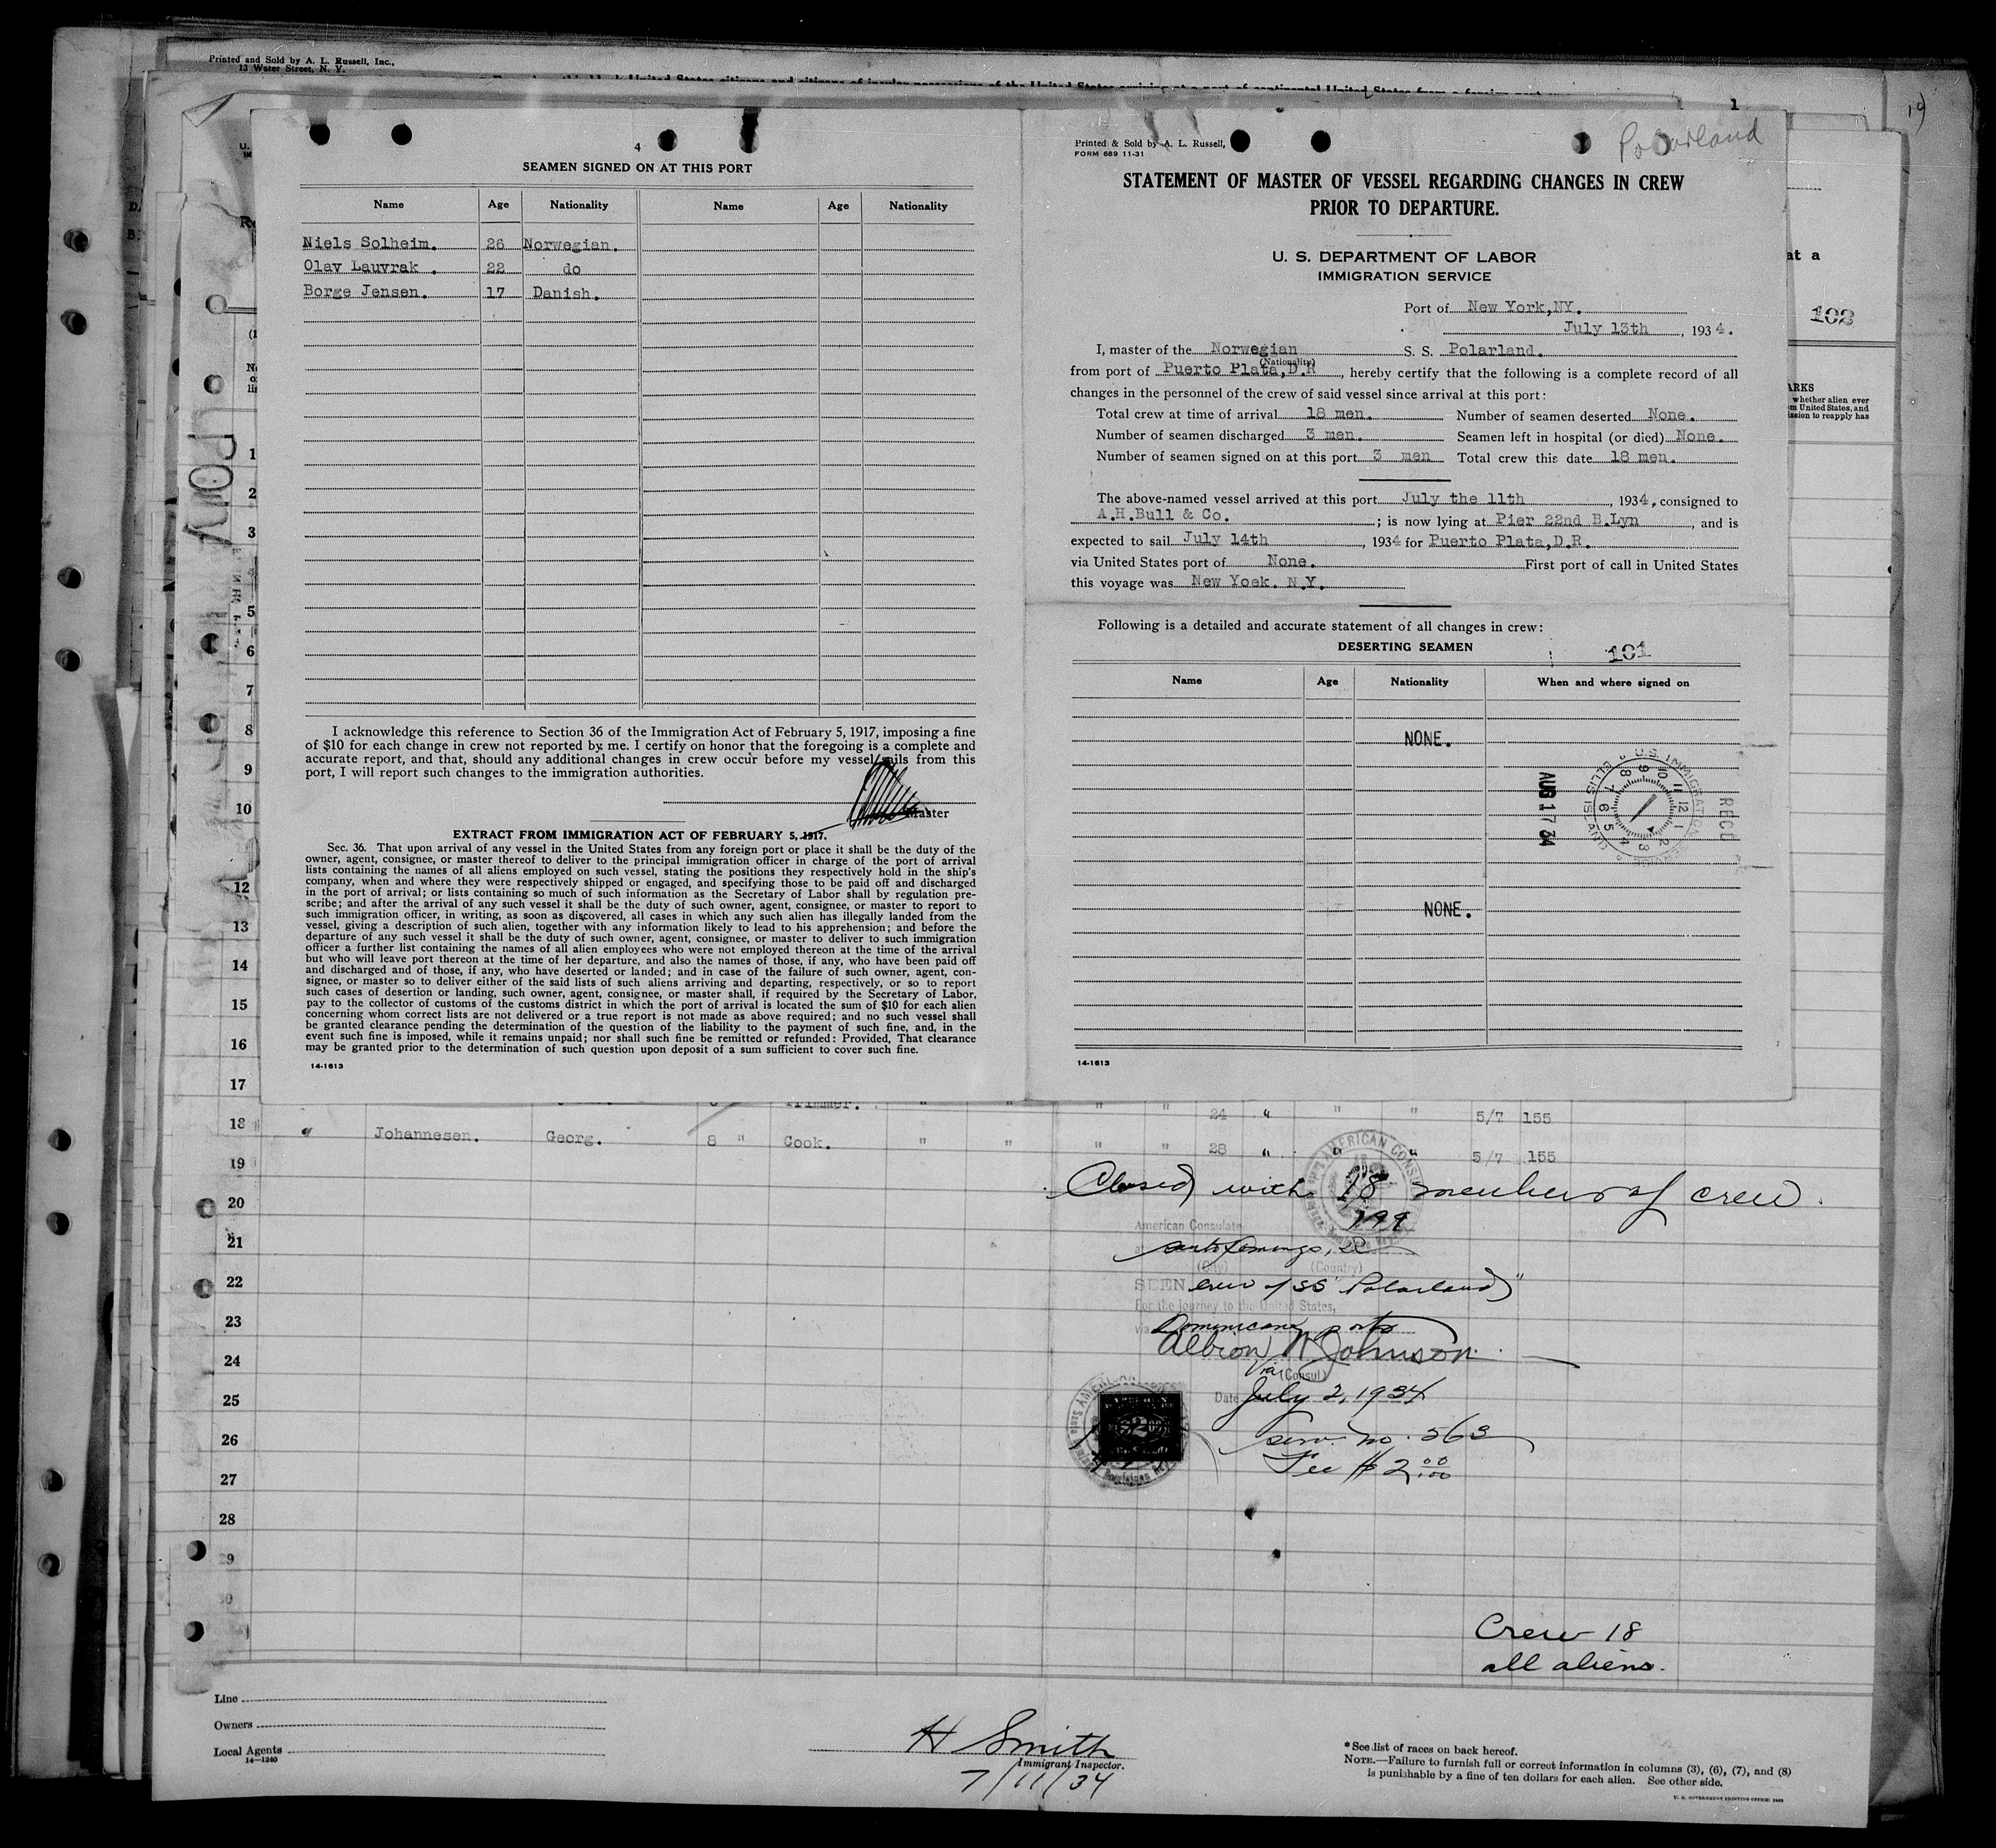 Printed and Sold by A. L. Russell, Inc.,
13 Water Street, N. Y.
1
19
4
SEAMEN SIGNED ON AT THIS PORT
Name Age Nationality Name Age Nationality
Niels Solheim. 26 Norwegian.
Olav Lauvrak . 22 do
Borge Jensen. 17 Danish.
I acknowledge this reference to Section 36 of the Immigration Act of February 5, 1917, imposing a fine
of $10 for each change in crew not reported by me. I certify on honor that the foregoing is a complete and
accurate report, and that, should any additional changes in crew occur before my vessel sails from this
port, I will report such changes to the immigration authorities.
Master
EXTRACT FROM IMMIGRATION ACT OF FEBRUARY 5, 1917.
Sec. 36. That upon arrival of any vessel in the United States from any foreign port or place it shall be the duty of the
owner, agent, consignee, or master thereof to deliver to the principal immigration officer in charge of the port of arrival
lists containing the names of all aliens employed on such vessel, stating the positions they respectively hold in the ship's
company, when and where they were respectively shipped or engaged, and specifying those to be paid off and discharged
in the port of arrival; or lists containing so much of such information as the Secretary of Labor shall by regulation pre-
scribe; and after the arrival of any such vessel it shall be the duty of such owner, agent, consignee, or master to report to
such immigration officer, in writing, as soon as discovered, all cases in which any such alien has illegally landed from the
vessel, giving a description of such alien, together with any information likely to lead to his apprehension; and before the
departure of any such vessel it shall be the duty of such owner, agent, consignee, or master to deliver to such immigration
officer a further list containing the names of all alien employees who were not employed thereon at the time of the arrival
but who will leave port thereon at the time of her departure, and also the names of those, if any, who have been paid off
and discharged and of those, if any, who have deserted or landed; and in case of the failure of such owner, agent, con-
signee, or master so to deliver either of the said lists of such aliens arriving and departing, respectively, or so to report
such cases of desertion or landing, such owner, agent, consignee, or master shall, if required by the Secretary of Labor,
pay to the collector of customs of the customs district in which the port of arrival is located the sum of $10 for each alien
concerning whom correct lists are not delivered or a true report is not made as above required; and no such vessel shall
be granted clearance pending the determination of the question of the liability to the payment of such fine, and, in the
event such fine is imposed, while it remains unpaid; nor shall such fine be remitted or refunded: Provided, That clearance
may be granted prior to the determination of such question upon deposit of a sum sufficient to cover such fine.
14-1613
Printed & Sold by A. L. Russell,
FORM 689 11-31
Polarland
STATEMENT OF MASTER OF VESSEL REGARDING CHANGES IN CREW
PRIOR TO DEPARTURE.
U. S. DEPARTMENT OF LABOR
IMMIGRATION SERVICE
Port of New York,NY.
July 13th , 1934.
I, master of the Norwegian S. S. Polarland.
(Nationality)
from port of Puerto Plata,D.R , hereby certify that the following is a complete record of all
changes in the personnel of the crew of said vessel since arrival at this port:
Total crew at time of arrival 18 men. Number of seamen deserted None.
Number of seamen discharged 3 men. Seamen left in hospital (or died) None.
Number of seamen signed on at this port 3 men Total crew this date 18 men.
The above-named vessel arrived at this port July the 11th , 1934, consigned to
A.H.Bull & Co. ; is now lying at Pier 22nd B.Lyn , and is
expected to sail July 14th , 1934 for Puerto Plata,D.R.
via United States port of None. First port of call in United States
this voyage was New Yoek. N.Y.
Following is a detailed and accurate statement of all changes in crew:
DESERTING SEAMEN
101
Name Age Nationality When and where signed on
NONE.
AUG 17 34
U.S. IMMIGRATION SERVICE
ELLIS ISLAND
RECD
NONE.
14-1613
at a
102
ARKS
whether alien ever
m United States, and
ission to reapply has
1
2
3
4
5
6
7
8
9
10
12
13
14
15
16
17
Trimmer. " " " " 24 " " " 5/7 155
18 " Johannesen. Georg. 8 " Cook. " " " " 28 " " " 5/7 155
19
Closed with 18 members of crew.
20
199
American Consulate
21
Santo Domingo, DR
(City) (Country)
22
SEEN crew of SS "Polarland"
For the journey to the United States,
23
via Dominican ports
Albion W Johnson
24
Vice (Consul)
25
Date July 2, 1934
26
Serv. no. 563
Fee $ 2.00
27
28
29
30
Crew 18
all aliens.
Line
Owners
Local Agents
14—1240
H Smith
Immigrant Inspector.
7/11/34
*See list of races on back hereof.
NOTE.—Failure to furnish full or correct information in columns (3), (6), (7), and (8)
is punishable by a fine of ten dollars for each alien. See other side.
U. S. GOVERNMENT PRINTING OFFICE: